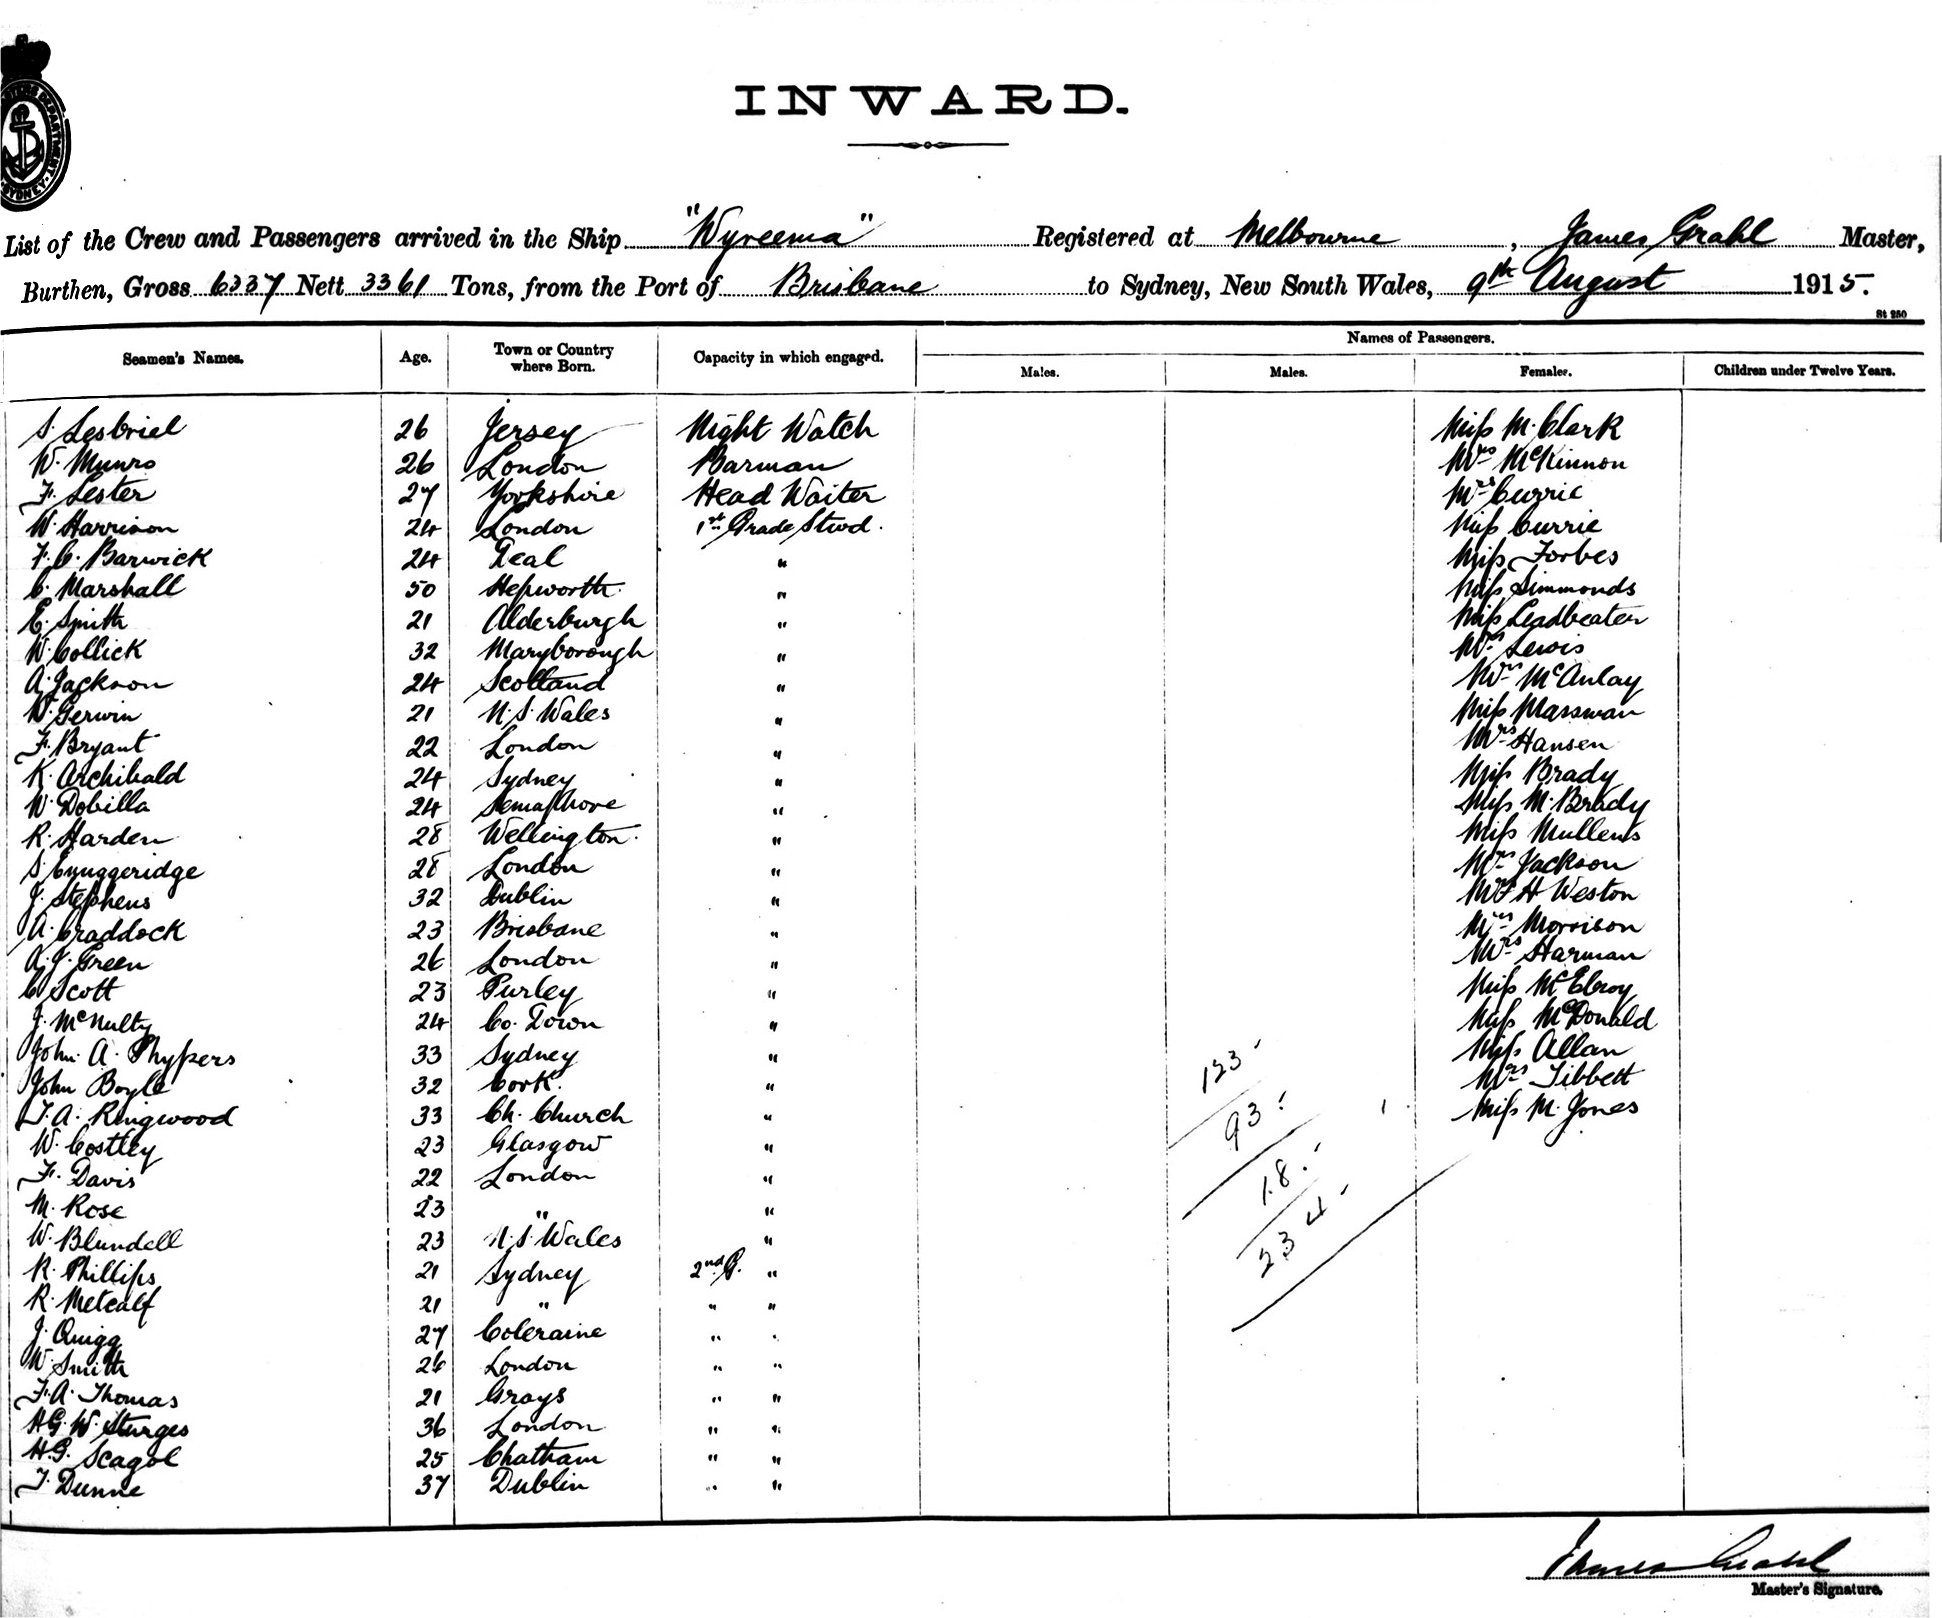 CUSTOMS DEPARTMENT SYDNEY
INWARD.
List of the Crew and Passengers arrived in the Ship "Wyreema" Registered at Melbourne, James Grahl Master,
Burthen, Gross 6337 Nett 3361 Tons, from the Port of Brisbane to Sydney, New South Wales, 9th August 1915.
St 250
Seamen's Names. Age. Town or Country where Born. Capacity in which engaged. Names of Passengers.
Males. Males. Females. Children under Twelve Years.
S. Lesbriel 26 Jersey Night Watch Miss M. Clark
W. Munro 26 London Barman Mrs McKinnon
F. Lester 27 Yorkshire Head Waiter Mrs Currie
W. Harrison 24 London 1st Grade Stwd. Miss Currie
F. C. Barwick 24 Deal " Miss Forbes
C. Marshall 50 Hepworth " Miss Simmonds
E. Smith 21 Alderburgh " Miss Leadbeater
W. Collick 32 Maryborough " Mrs Lewis
A. Jackson 24 Scotland " Mrs McAulay
W. Gerwin 21 N.S. Wales " Miss Massman
F. Bryant 22 London " Mrs Hansen
K. Archibald 24 Sydney " Miss Brady
W. Dobilla 24 Semaphore " Miss M. Brady
R. Harden 28 Wellington " Miss Mullens
S. 28 London " Mrs Jackson
J. Stephens 32 Dublin " H Weston
A. Craddock 23 Brisbane " Mrs Morrison
A. J. Green 26 London " Mrs Harman
C. Scott 23 Purley " Miss McElroy
J. McNulty 24 Co. Down " Miss McDonald
John A. Phypers 33 Sydney " Miss Allan
John Boyle 32 Cork. " Mrs Tibbett
T. A. Ringwood 33 Ch. Church " Miss M. Jones
W. Costley 23 Glasgow "
F. Davis 22 London "
M. Rose 23 " "
W. Blundell 23 N.S. Wales "
R. Phillips 21 Sydney 2nd G. "
R. Metcalf 21 " " "
J. Quigg 27 Coleraine " "
W. Smith 26 London " "
F. A. Thomas 21 Grays " "
H G. W. Sturges 36 London " "
H. G. Scagol 25 Chatham " "
T. Dunne 37 Dublin " "
123
93
18
234
James Grahl
Master's Signature.